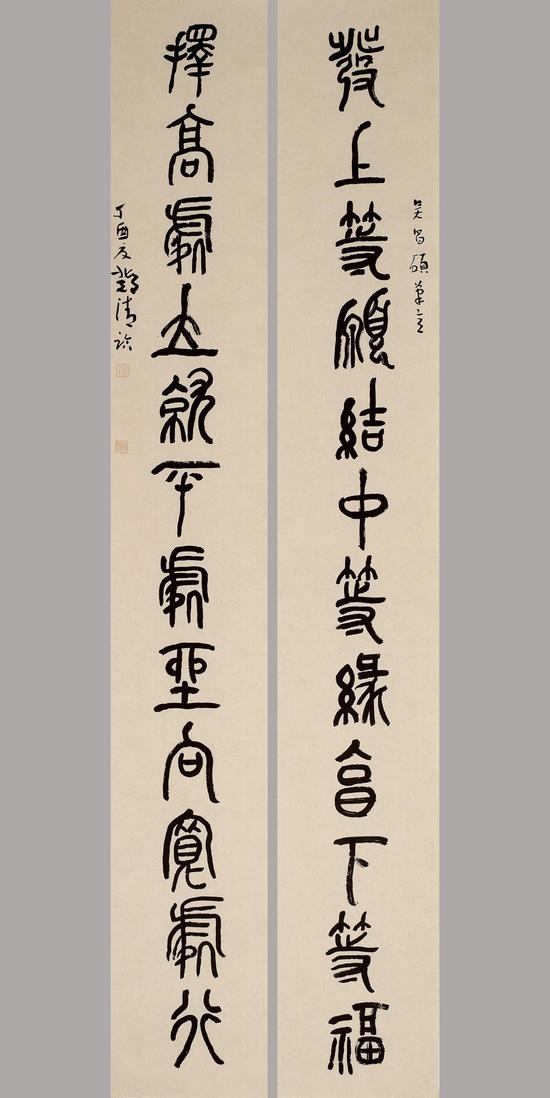 吴昌碩筆意
發上等願結中等緣享下等福
擇高處立就平處坐向寬處行
丁酉夏